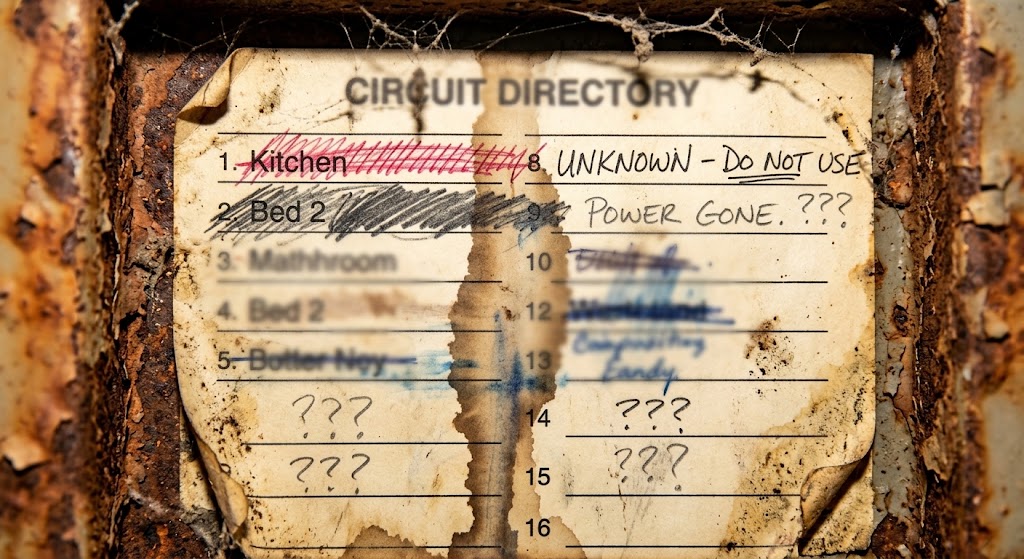 CIRCUIT DIRECTORY
1. Kitchen
2. Bed 2
3. Mathhroom
4. Bed 2
5. Botter Noy
???
???
8. UNKNOWN – DO NOT USE
9. POWER GONE. ???
10
12
13
14 ???
15 ???
16